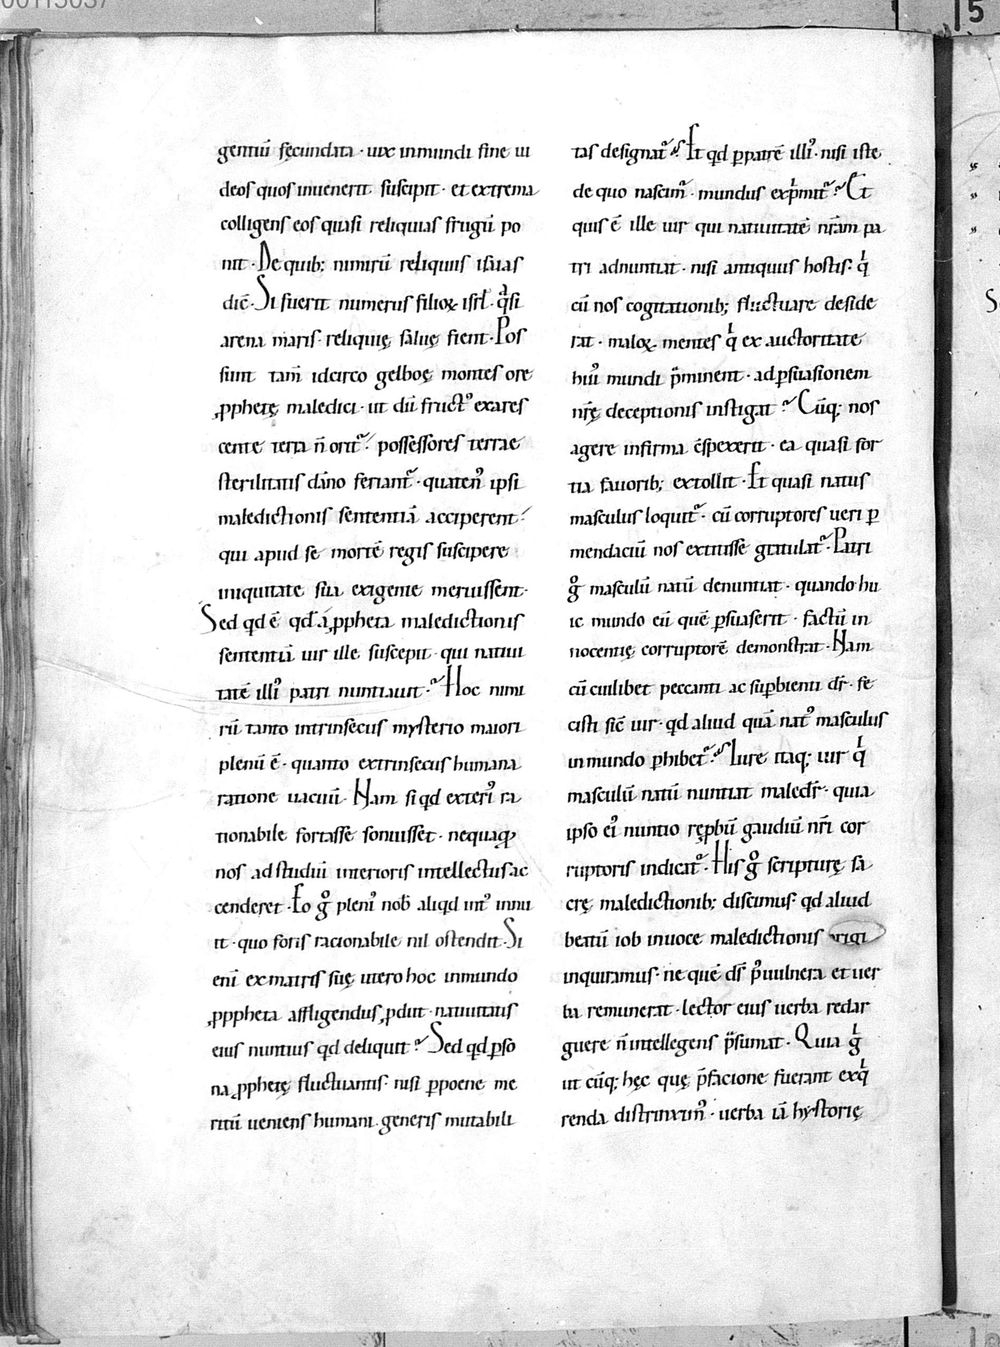 gentiū fęcundata · uix inmundi fine iu
deos quos inuenerit suscipit · et extrema
colligens eos quasi reliquias frugū po
nit · De quib; nimirū reliquiis isaias
dic̄ · Si fuerit numerus filioꝝ isrl̄ · q̇si
arena maris · reliquię saluę fient · Pos
sunt tam̄ idcirco gelboę montes ore
ꝓphetę maledici · ut dū fructꝰ exares
cente terra n̄ oritᷣ · possessores terrae
sterilitatis dāno feriant᷑ · quaten᷒ ipsi
maledictionis sententiā acciperent ·
qui apud se mortē regis suscipere
iniquitate sua exigente meruissent ·
Sed qd ē qd̄ a ꝓpheta maledictionis
sententiā uir ille suscepit · qui natiui
tatē illiꝰ patri nuntiauit · Hoc nimi
rū tanto intrinsecus mysterio maiori
plenū ē · quanto extrinsecus humana
ratione uacuū · Nam si qd exteriꝰ ra
tionabile fortasse sonuisset · nequaꝗ
nos ad studiū interioris intellectus ac
cenderet · Eo gͦ pleniꝰ nob̄ aliqd intꝰ innu
it · quo foris racionabile nil ostendit · Si
enī ex matris suę utero hoc inmundo
ꝓppheta affligendus ꝓdiit · natiuitatis
eius nuntius qd deliquit · Sed qd ꝑso
na ꝓphetę fluctuantis · nisi ꝑ poene me
ritū ueniens humani generis mutabili
tas designat᷑ · Et qd ꝑ patrē illiꝰ · nisi iste
de quo nascim᷒ · mundus exp̍mit᷑ · Et
quis ē ille uir qui natiuitatē nr̄am pa
tri adnuntiat · nisi antiquus hostis · qͥ
cū nos cogitationib; fluctuare deside
rat · maloꝝ mentes qͥ ex auctoritate
huiꝰ mundi p̄minent · ad ꝑsuasionem
nr̄ę deceptionis instigat · Cūq; nos
agere infirma c̄spexerit · ea quasi for
tia fauorib; extollit · Et quasi natus
masculus loquit᷑ · cū corruptores ueri ꝑ
mendaciū nos extitisse gratulat᷑ · Patri
gͦ masculū natū denuntiat · quando hu
ic mundo eū quē ꝑsuaserit · factū in
nocentię corruptorē demonstrat · Nam
cū cuilibet peccanti ac suꝑbienti dr̄ · fe
cisti sic̄ uir · qd aliud quā natꝰ masculus
in mundo ꝑhibet᷑ · Iure itaq; uir qͥ
masculū natū nuntiat maledr̄ · quia
ipso eiꝰ nuntio rępbū gaudiū nr̄i cor
ruptoris indicat᷑ · His gͦ scripturę sa
crę maledictionib; discimus · qd aliud
beatū iob in uoce maledictionis
inquiramus · ne quē ds̄ pꝰ uulnera et uer
ba remunerat · lector eius uerba redar
guere n̄ intellegens p̄sumat · Quia gͥ
ut cūq; hęc quę p̄facione fuerant exqͥ
renda distrinxim᷒ · uerba iā hystorię